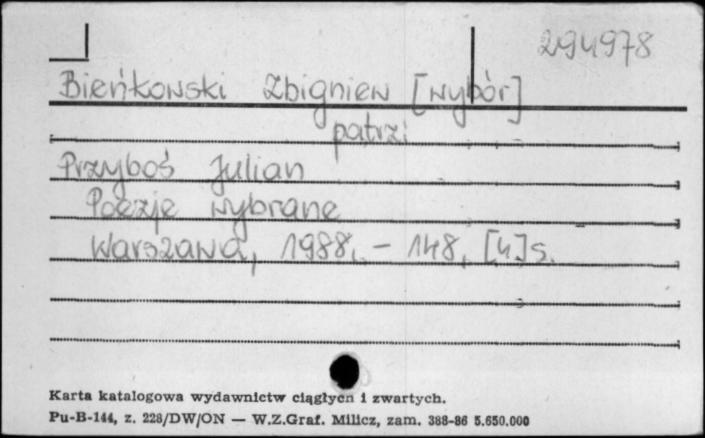 294978
Bieńkowski Zbigniew [wybór]
patrz:
Przyboś Julian
Poezje wybrane
Warszawa, 1988. - 148, [4] s.
Karta katalogowa wydawnictw ciągłych i zwartych.
Pu-B-144, z. 228/DW/ON — W.Z.Graf. Milicz, zam. 388-86 5.650.000